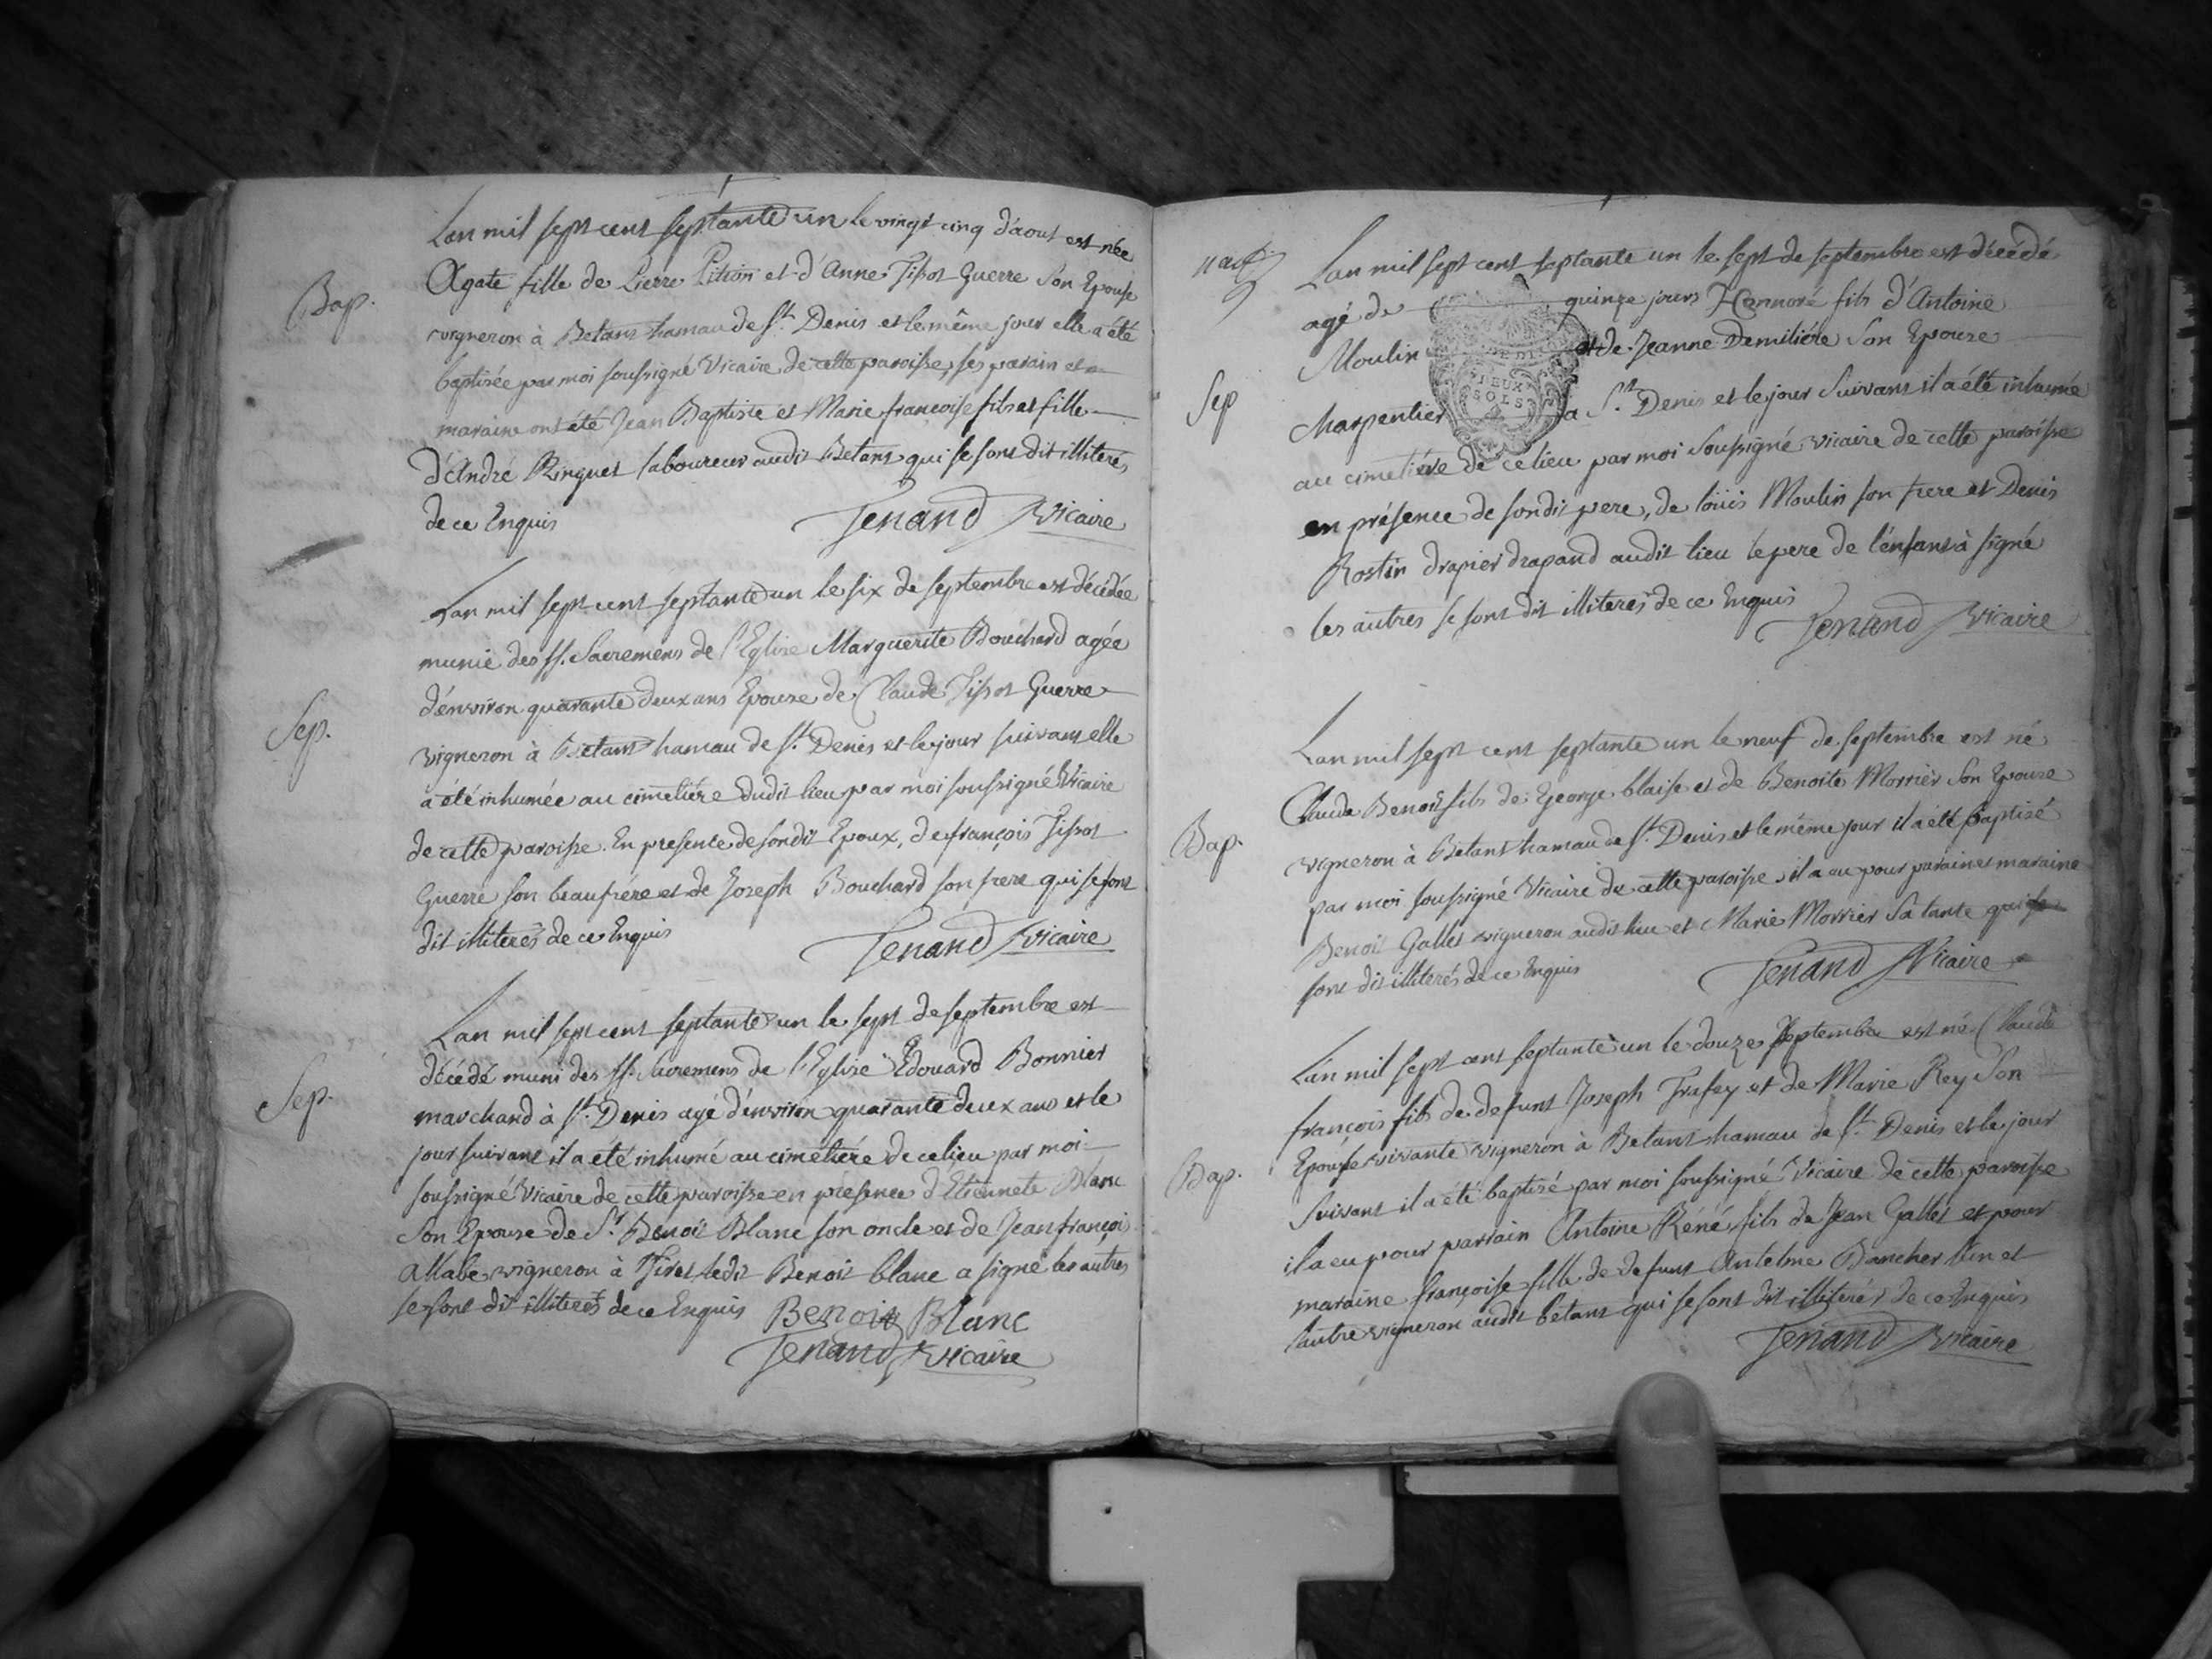 Bap.
Lan mil sept cent septante un le vingt cinq d'aout est née
Agate fille de Pierre Pitrion et d'Anne Tissot Guerre son Epouse
vigneron à Betans hamau de St. Denis et le même jour elle a été
baptisée par moi soussigné Vicaire de cette paroisse, ses parain et
maraine ont été Jean Baptiste et Marie francoise fils et fille
d'André Ringuet laboureur audit Betans qui se sont dit illiterés
de ce Enquis
Tenand Vicaire
Sep.
Lan mil sept cent septante un le six de septembre est décédée
munie des SS. Sacremens de l'Eglise Marguerite Bouchard agée
d'environ quarante deux ans Epouse de Claude Tissot Guerre
vigneron à Betans hamau de St. Denis et le jour suivant elle
a été inhumée au cimetiére dudit lieu par moi soussigné Vicaire
de cette paroisse. En presence de sondit Epoux, de françois Tissot
Guerre son beaufrére et de Joseph Bouchard son frere qui se sont
dit illiterés de ce Enquis
Tenand Vicaire
Sep.
Lan mil sept cent septante un le sept de septembre est
décédé muni des SS. Sacremens de l'Eglise Edouard Bonnier
marchand à St. Denis agé d'environ quarante deux ans et le
jour suivant il a été inhumé au cimetiére de ce lieu par moi
soussigné Vicaire de cette paroisse en presence d'Etiennete Blanc
son Epouse de Sr. Benoit Blanc son oncle et de Jean françoi
Mabe vigneron à Tiret ledit Benoit blanc a signé les autres
se sont dit illiterés de ce Enquis
Benoit Blanc
Tenand Vicaire
neuf
9
Sep
Lan mil sept cent septante un le sept de septembre est décédé
agé de quinze jours Honnoré fils d'Antoine
Moulin et de Jeanne Demiliére son Epouse
Charpentier a St. Denis et le jour suivant il a été inhumé
au cimetiére de ce lieu par moi soussigné vicaire de cette paroisse
en présence de sondit pere, de loüis Moulin son frere et Denis
Rostin drapier drapand audit lieu le pere de l'enfant à signé
les autres se sont dit illiterés de ce Enquis
Tenand Vicaire
Bap.
Lan mil sept cent septante un le neuf de septembre est né
Claude Benoit fils de George blaise et de Benoite Morrier son Epouse
vigneron à Betans hamau de St. Denis et le même jour il a été baptisé
par moi soussigné Vicaire de cette paroisse, il a eu pour parain et maraine
Benoit Gallet vigneron audit lieu et Marie Morrier sa tante qui se
sont dit illiterés de ce Enquis
Tenand Vicaire
Bap.
Lan mil sept cent septante un le douze septembre est né Claude
françois fils de defunt Joseph Trafey et de Marie Rey son
Epouse vivante vigneron à Betans hamau de St. Denis et le jour
suivant il a été baptisé par moi soussigné Vicaire de cette paroisse
il a eu pour parrain Antoine Réné fils de Jean Gallet et pour
maraine françoise fille de defunt Antelme Bancher l'un et
l'autre vigneron audit betans qui se sont dit illiterés de ce Enquis
Tenand Vicaire